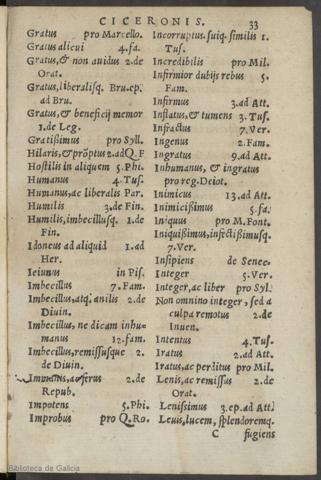 CICERONIS. 33
Gratus pro Marcello.
Gratus alicui 4.fa.
Gratus, & non auidus 2.de
Orat.
Gratus, liberalisq. Bru.ep.
ad Bru.
Gratus, & beneficij memor
1.de Leg.
Gratißimus pro Syll.
Hilaris, & prõptus 2.ad Q.F
Hostilis in aliquem 5.Phi.
Humanus 4.Tus.
Humanus, ac liberalis Par.
Humilis 3.de Fin.
Humilis, imbecillusq. 1.de
Fin.
Idoneus ad aliquid 1.ad
Her.
Ieiunus in Pis.
Imbecillus 7.Fam.
Imbecillus, atq. anilis 2.de
Diuin.
Imbecillus, ne dicam inhu-
manus 12.fam.
Imbecillus, remissusque 2.
de Diuin.
Immanis, ac ferus 2.de
Repub.
Impotens 5.Phi.
Improbus pro Q.Ro.
Incorruptus. suiq. similis 1.
Tus.
Incredibilis pro Mil.
Infirmior dubijs rebus 5.
Fam.
Infirmus 3.ad Att.
Inflatus, & tumens 3.Tus.
Infractus 7.Ver.
Ingenus 2.Fam.
Ingratus 9.ad Att.
Inhumanus, & ingratus
pro reg.Deiot.
Inimicus 13.ad Att.
Inimicißimus 5.fa.
Iniquus pro M.Font.
Iniquißimus, infectißimusq.
7.Ver.
Insipiens de Senec.
Integer 5.Ver.
Integer, ac liber pro Syl.
Non omnino integer, sed a
culpa remotus 2.de
Inuen.
Intentus 4.Tus.
Iratus 2.ad Att.
Iratus, ac perditus pro Mil.
Lenis, ac remissus 2.de
Orat.
Lenissimus 3.ep.ad Att.
Leuis, lucem, splendoremq.
C fugiens
Biblioteca de Galicia